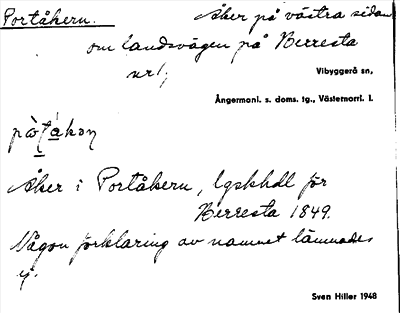 Portåkern.
Åker på västra sidan
om landsvägen på Berresta
nr 1,
Vibyggerå sn,
Ångermanl. s. doms. tg., Västernorrl. l.
Åker i Portåkern, lgskhdl för
Berresta 1849.
Någon förklaring av namnet lämnades
ej.
Sven Hiller 1948